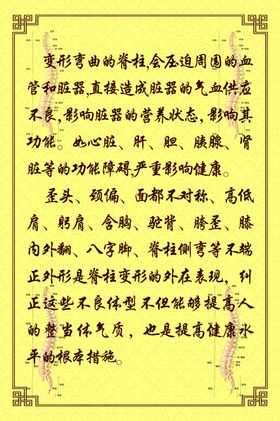 变形弯曲的脊柱,会压迫周围的血
管和脏器,直接造成脏器的气血供应
不良,影响脏器的营养状态,影响其
功能。如心脏、肝、胆、胰腺、肾
脏等的功能障碍,严重影响健康。
歪头、颈偏、面部不对称、高低
肩、躬肩、含胸、驼背、胯歪、膝
内外翻、八字脚、脊柱侧弯等不端
正外形是脊柱变形的外在表现,纠
正这些不良体型不但能够提高人
的整当体气质,也是提高健康水
平的根本措施。